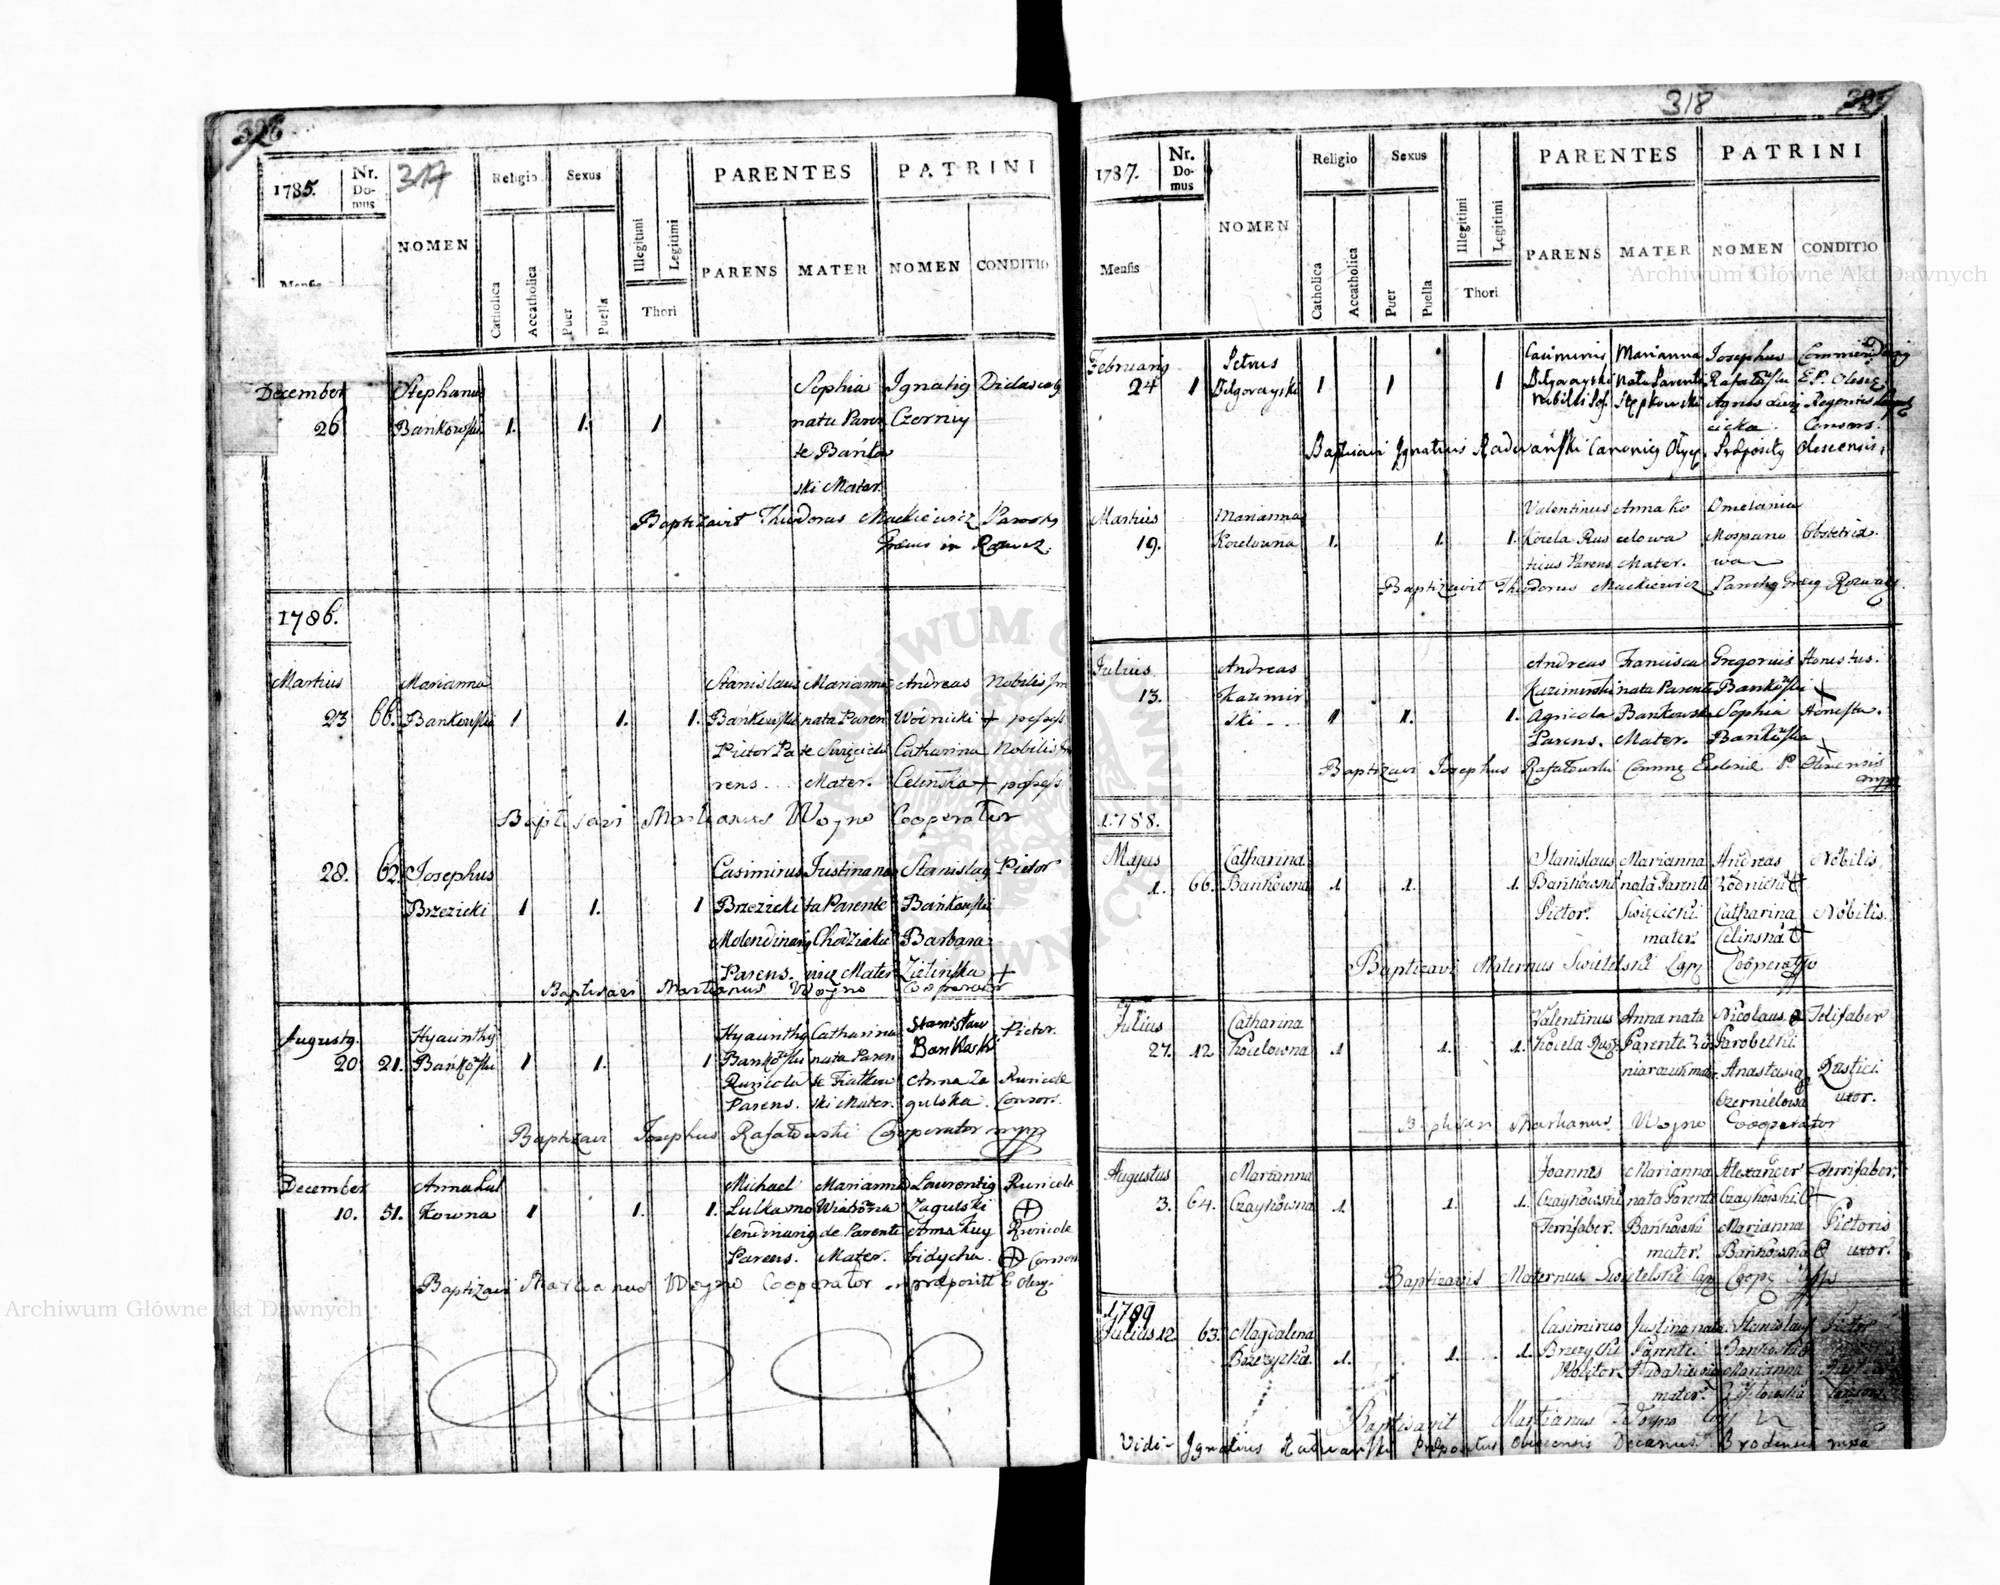 326
317
1785.
Nr. Domus
NOMEN
Religio
Sexus
Catholica
Accatholica
Puer
Puella
Illegitimi
Legitimi
Thori
PARENTES
PATRINI
PARENS
MATER
NOMEN
CONDITIO
December
26
Stephanus
Bańkowski
1.
1.
1
Sophia
nata Paren
te Bańko
ski Mater.
Ignatig
Czerniy
Baptizavit Theodorus Mackiewicz Paroch
1786.
Martius
23
66.
Marianna
Bańkowska
1
1.
1.
Stanislaus
Bańkowski
Pictor Pa
rens
Marianna
nata Paren
te Święcicki
Mater.
Andreas
Wodnicki +
Catharina
Celińska +
Nobilis
possess
Nobilis
possess
Baptisavi Martianus Woyno Cooperator
28.
62.
Josephus
Brzezicki
1
1.
1
Casimirus
Brzezicki
Molendinarig
Parens.
Justina na
ta Parente
Mater
Stanislag
Bańkowski
Barbara
Zielińska +
Pictor
Baptisavi Martianus Woyno Cooperator
Augustg.
20
21.
Hyacinthg
Bańkowski
1
1.
1
Hyacinthg
Bańkowski
Ruricola
Parens.
Catharina
nata Paren
te
ski Mater.
Stanisław
Bankoski
Anna Za
gulska.
Pictor.
Ruricolæ
Consors.
Baptizavi Josephus Rafałowski Cooperator mpp
December
10.
51.
Anna Lul
kowna
1
1.
1.
Michael
Lulka mo
lendinarig
Parens.
Marianna
de Parente
Mater.
Laurentig
Zagulski
Anna Kuy
bidycha.
Ruricola
Ruricolæ
Consors
Baptizavi Martianus Woyno Cooperator
318
327
1787.
Nr. Domus
NOMEN
Religio
Sexus
PARENTES
PATRINI
Mensis
Catholica
Accatholica
Puer
Puella
Illegitimi
Legitimi
Thori
PARENS
MATER
NOMEN
CONDITIO
Februarig
24
1
Petrus
Biłgorayski
1
1
1
Casimirus
Biłgorayski
Marianna
nata Parente
Stępkowski
Josephus
Rafałowski
Agnes
Consors.
Baptisavi Ignatius Radwański Canonicg
Martius
19.
Marianna
Kozelowna
1.
1.
1.
Valentinus
Kozela Rus
ticus Parens
Anna Ko
zelowa
Mater.
Dmetania
Mospano
wa
Obstetrix.
Baptizavit Theodorus Mackiewicz
Julius
13.
Andreas
Kazimir
ski
1
1.
1.
Andreas
Kazimirski
Agricola
Parens.
Francisca
nata Parente
Bańkowski
Mater.
Gregorius
Bańkowski
Sophia
Bańkowska
Honestus.
Honesta.
Baptizavi Josephus Rafałowski
1788.
Majus
1.
66.
Catharina
Bańkowna
1
1.
1.
Stanislaus
Bańkowski
Pictor.
Marianna
nata Parente
Swięcicki
mater.
Andreas
Wodnicki
Catharina
Celinska
Nobilis
Nobilis.
Baptizavi Maternus Swietelski Cooperator
Julius
27.
12
Catharina
Kozielowna
1
1.
1.
Valentinus
Koziela
Anna nata
Parente
Nicolaus
Parobecki
Anastasia
Czernielowa
Telifaber
Rustici
uxor.
Baptisavi Martianus Woyno Cooperator
Augustus
3.
64.
Marianna
Czaykowna
1
1.
1.
Joannes
Czaykowski
Ferrifaber.
Marianna
nata Parente
Bańkowski
mater.
Alexander
Czaykowski
Marianna
Bańkowska
Ferrifaber.
Pictoris
uxor.
Baptizavit Maternus Swietelski
1789
Julius 12
63.
Magdalena
Brzezycka
1.
1.
1.
Casimirus
Brzezycki
Molitor
Justina nata
Parente
mater.
Stanislaus
Bańkowski
Marianna
Pictor
Baptisavit Martianus Woyno
Vidi Ignatius Radwański Præpositus Olexiensis Decanus Brodensis mpa
Archiwum Główne Akt Dawnych
Archiwum Główne Akt Dawnych